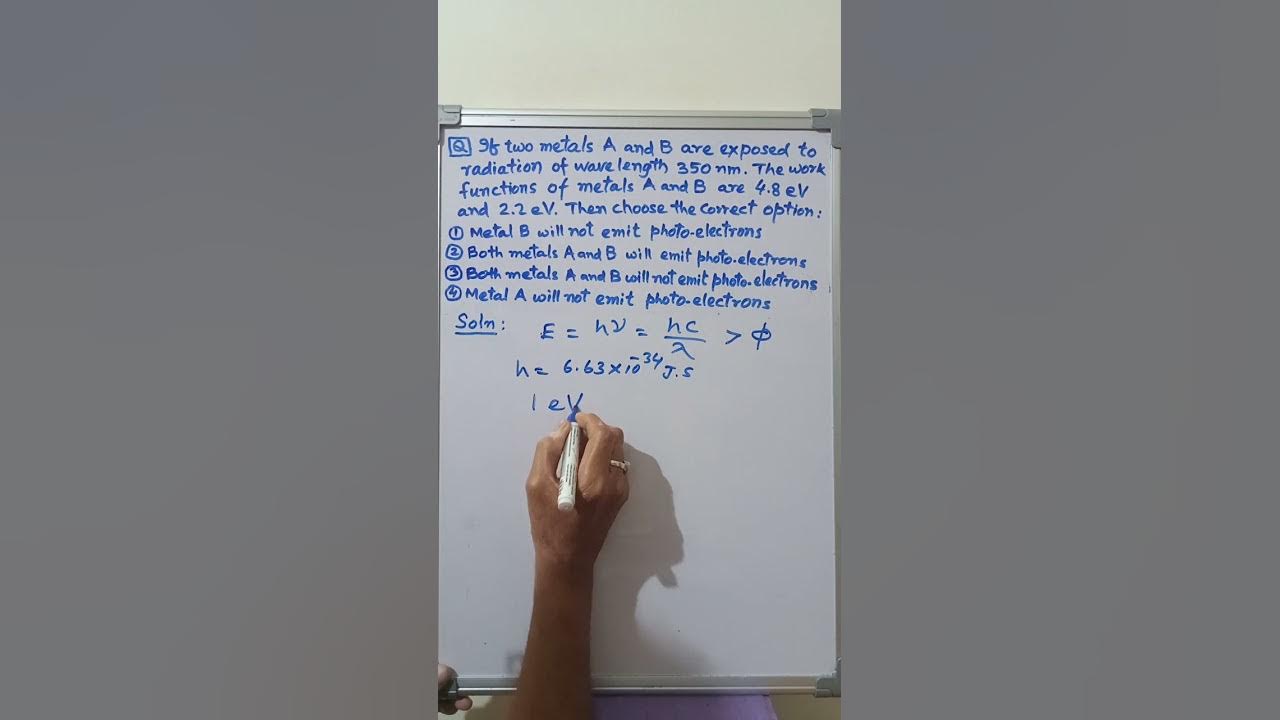 Q If two metals A and B are exposed to
radiation of wavelength 350 nm. The work
functions of metals A and B are 4.8 eV
and 2.2 eV. Then choose the correct option:
① Metal B will not emit photo-electrons
② Both metals A and B will emit photo-electrons
③ Both metals A and B will not emit photo-electrons
④ Metal A will not emit photo-electrons
Soln: E = hν = hc/λ > ϕ
h = 6.63×10⁻³⁴ J.s
1 eV